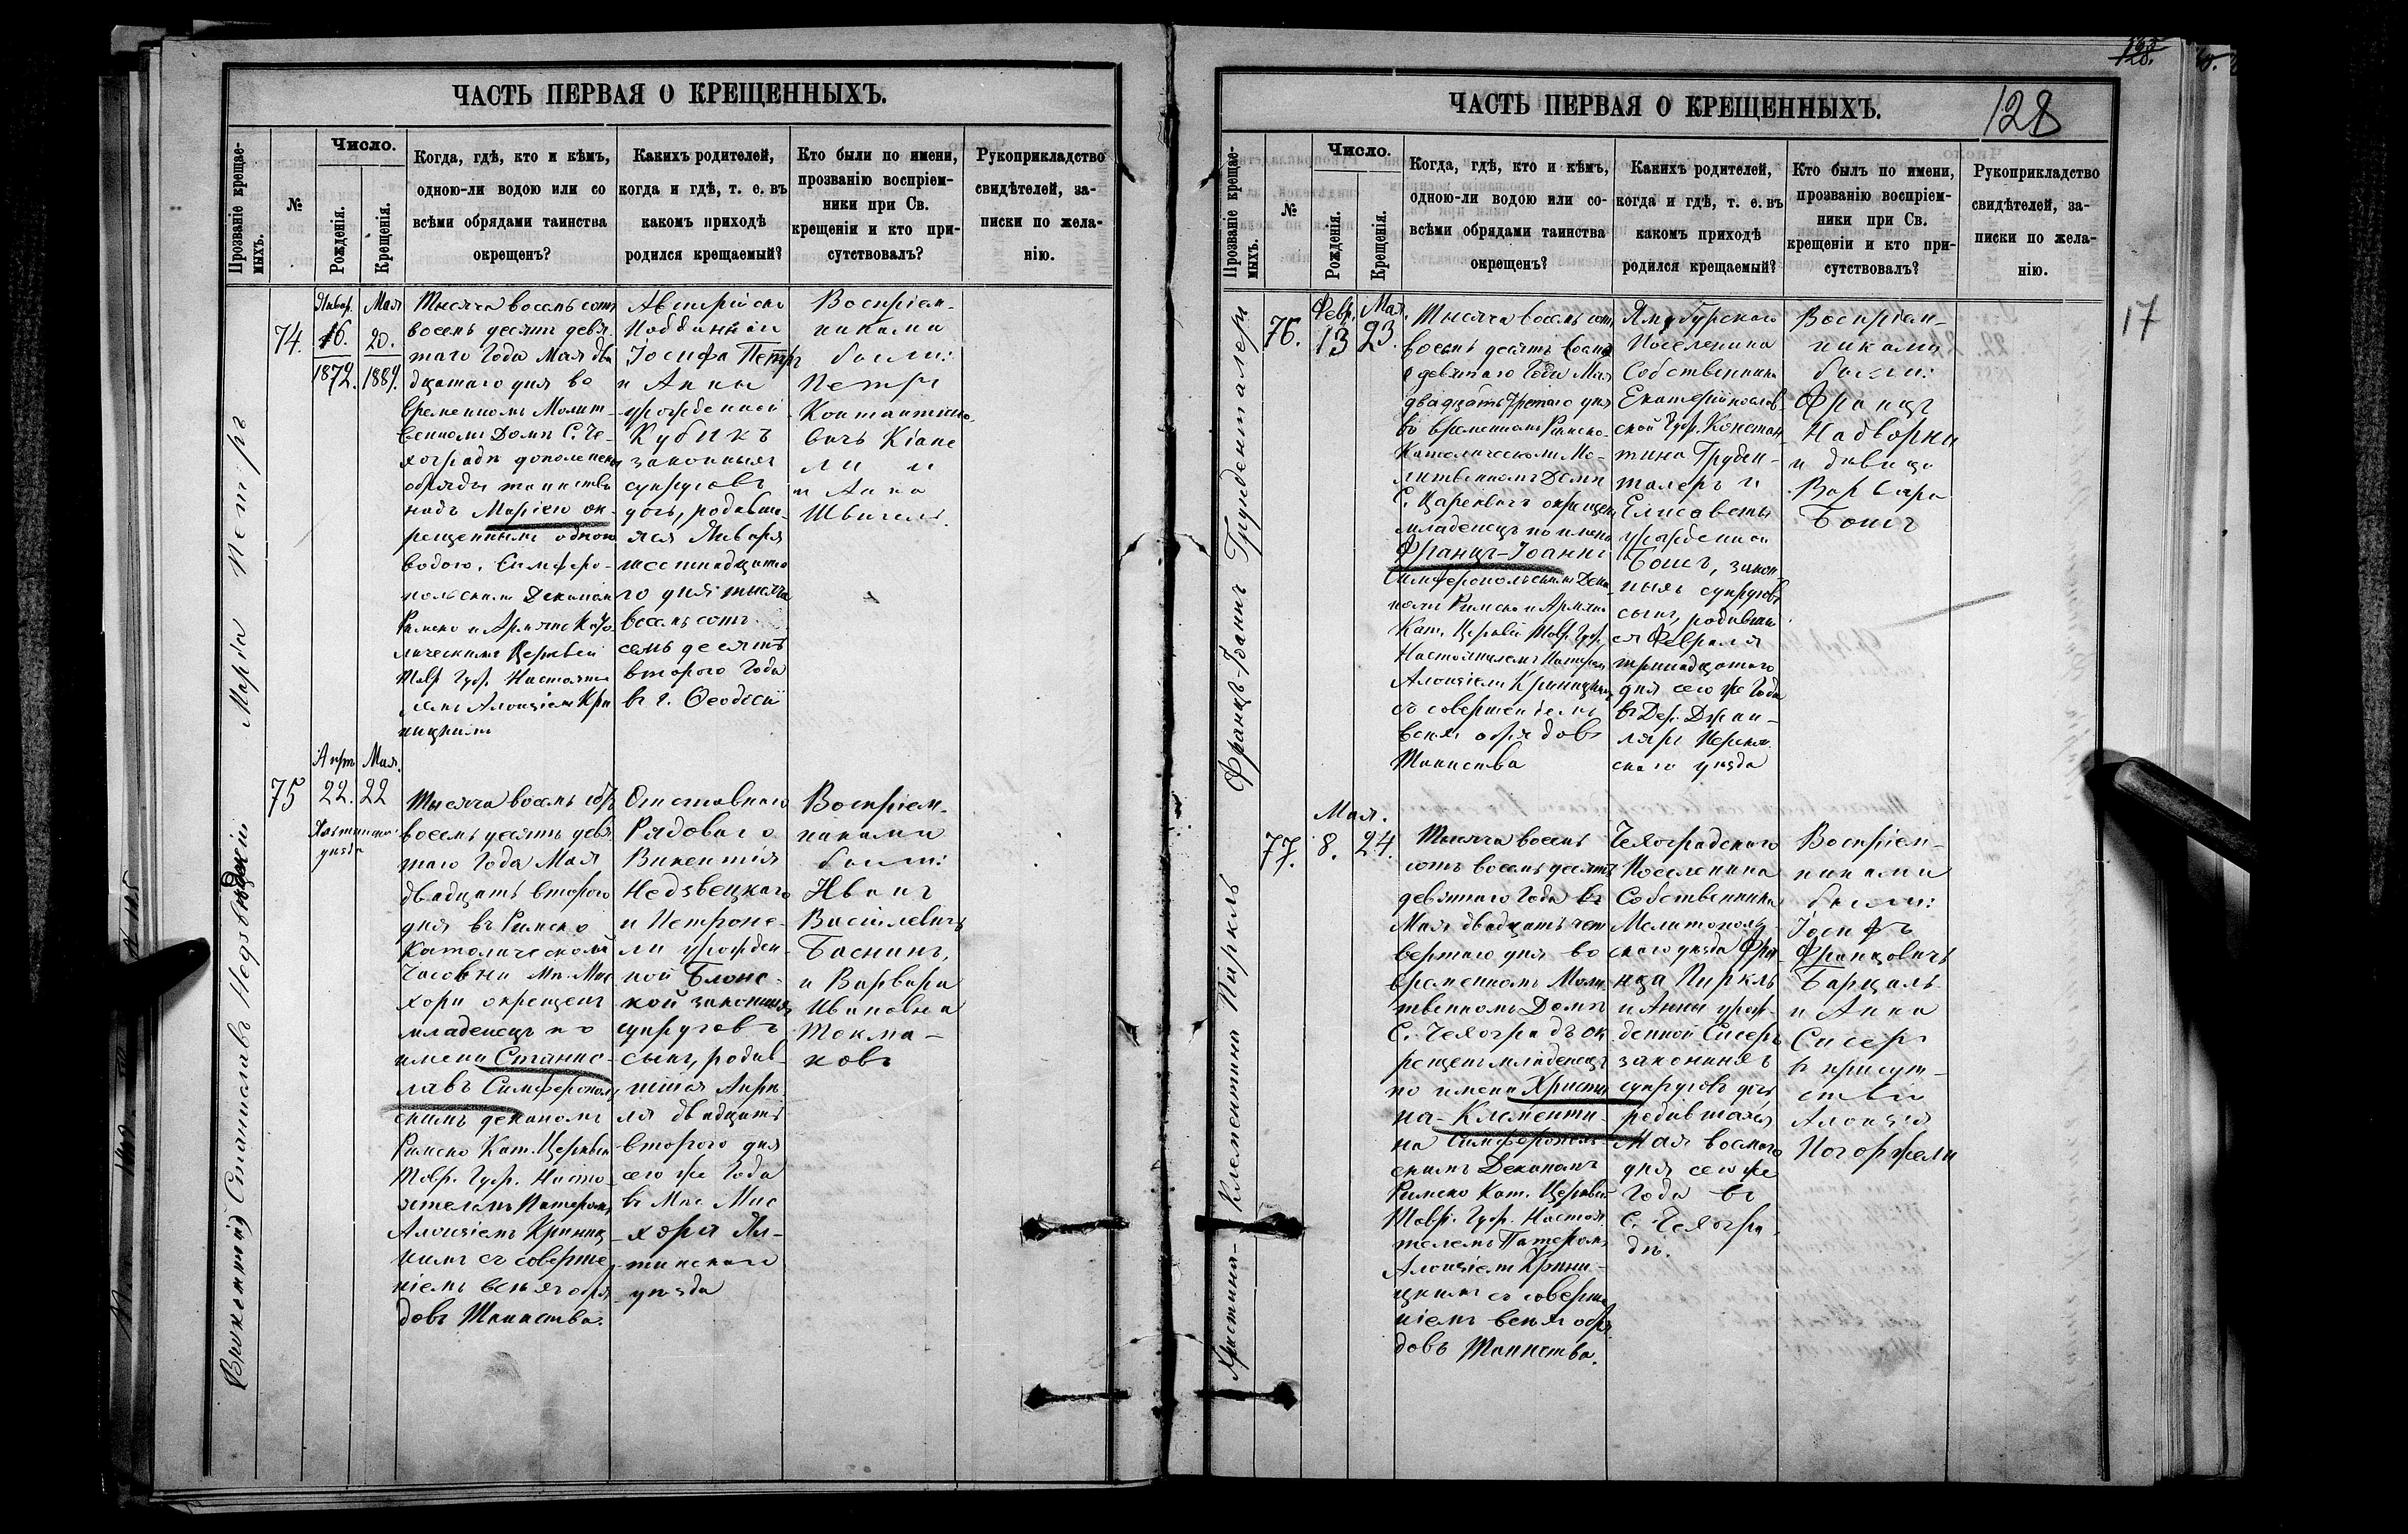 ЧАСТЬ ПЕРВАЯ О КРЕЩЕННЫХЪ.
Прозваніе крещае-
мыхъ.
№
Число.
Рожденія.
Крещенія.
Когда, гдѣ, кто и кѣмъ,
одною-ли водою или со
всѣми обрядами таинства
окрещенъ?
Какихъ родителей,
когда и гдѣ, т. е. въ
какомъ приходѣ
родился крещаемый?
Кто были по имени,
прозванію воспріем-
ники при Св.
крещеніи и кто при-
сутствовалъ?
Рукоприкладство
свидѣтелей, за-
писки по жела-
нію.
Марія Петръ
74.
Январ.
16.
1872.
Мая
20.
1889.
Тысяча восемь сотъ
восемь десятъ девя
таго Года Мая два
дцатаго дня во
временномъ Молит-
венномъ Домѣ С. Че-
хоградъ дополнены
обряды таинства
надъ Маріею ок-
рещенными одною
водою. Симферо-
польскимъ Деканом
Римско и Армяно Като
лическихъ Церквей
Тавр. Губ. Настояте
лемъ Алоизіемъ Кри
ницкимъ
Австрійско
Подданныхъ
Іосифа Петръ
и Анны
урожденной
Кубикъ
законныхъ
супруговъ
дочь, родивша-
яся Января
шестнадцата
го дня тысяча
восемь сотъ
семь десятъ
второго Года
въ г. Ѳеодосіи
Воспріем-
никами
были:
Петръ
Константино
вичъ Кіапе
ли и
и Анна
Швигель.
Станиславъ Недзвецкій
75
Апр.
22.
Мая.
22
Ялтинскаго
уѣзда
Тысяча восемь сотъ
восемь десятъ девя
таго Года Мая
двадцать второго
дня въ Римско
Католической
Часовни Мѣ. Мис
хоръ окрещенъ
младенецъ по
имени Станис-
лавъ Симферополь
скимъ деканомъ
Римско Кат. Церквей
Тавр. Губ. Насто-
ятелемъ Патеромъ
Алоизіемъ Криниц
кимъ съ соверше
ніемъ всѣхъ обря
довъ Таинства.
Отставного
Рядового
Викентія
Недзвецкаго
и Петроне-
ли урожден-
ной Блонс-
кой законныхъ
супруговъ
сынъ, родив-
шійся Апрѣ
ля двадцать
второго дня
сего же Года
въ Мѣс. Мис
хоръ Ял-
тинскаго
уѣзда
Воспріем-
никами
были:
Иванъ
Василевичъ
Баснинъ,
и Варвара
Ивановна
Токма-
ковъ
ЧАСТЬ ПЕРВАЯ О КРЕЩЕННЫХЪ.
128
128.
17
Прозваніе крещае-
мыхъ.
№
Число.
Рожденія.
Крещенія.
Когда, гдѣ, кто и кѣмъ,
одною-ли водою или со-
всѣми обрядами таинства
окрещенъ?
Какихъ родителей,
когда и гдѣ, т. е. въ
какомъ приходѣ
родился крещаемый?
Кто былъ по имени,
прозванію воспріем-
ники при Св.
крещеніи и кто при-
сутствовалъ?
Рукоприкладство
свидѣтелей, за-
писки по жела-
нію.
Францъ-Іоаннъ Груденталеръ
76.
Февр.
13
Мая.
23.
Тысяча восемь сотъ
восемь десятъ
девятаго Года Мая
двадцать третьяго дня
въ временномъ Римско-
Католическомъ Мо-
литвенномъ Домѣ
С. Царевичъ окрещенъ
младенецъ по имени
Францъ-Іоаннъ
Симферопольскимъ Дека
номъ Римско и Армяно
Кат. Церквей Тавр. Губ.
Настоятелемъ Патеромъ
Алоизіемъ Криницкимъ
съ совершеніемъ
всѣхъ обрядовъ
Таинства
Ямбургскаго
Поселянина
Собственника
Екатеринослав
ской Губ. Констан
тина Груден-
талеръ и
Елисаветы
урожденной
Бошъ, закон
ныхъ супруговъ
сынъ, родивший
ся Февраля
тринадцатаго
дня сего же Года
въ Дер. Джан-
ляръ Перекоп
скаго уѣзда
Воспріем-
никами
были:
Францъ
Надворни
и дѣвица
Варвара
Бошъ
Христина-Клементина Пиркль
77.
Мая.
8.
24.
Тысяча восемь
сотъ восемь десятъ
девятаго Года
Мая двадцать чет
вертаго дня во
временномъ Моли
твенномъ Домѣ
С. Чехоградъ ок
рещенъ младенецъ
по имени Христи
на-Клементи-
на Симферополь
скимъ Деканомъ
Римско Кат. Церквей
Тавр. Губ. Настоя
телемъ Патеромъ
Алоизіемъ Крини-
цкимъ съ соверше
ніемъ всѣхъ обря
довъ Таинства.
Чехоградскаго
Поселянина
Собственника
Мелитополь
скаго уѣзда Фра
нца Пиркль
и Анны урож-
денной Сисеръ
законныхъ
супруговъ дочь
родившаяся
Мая восмого
дня сего же
Года въ
С. Чехогра
дъ.
Воспріем-
никами
были:
Іосифъ
Францовичъ
Барцаль
и Анна
Сисеръ
въ присут-
ствіи
Алоизія
Погоржели